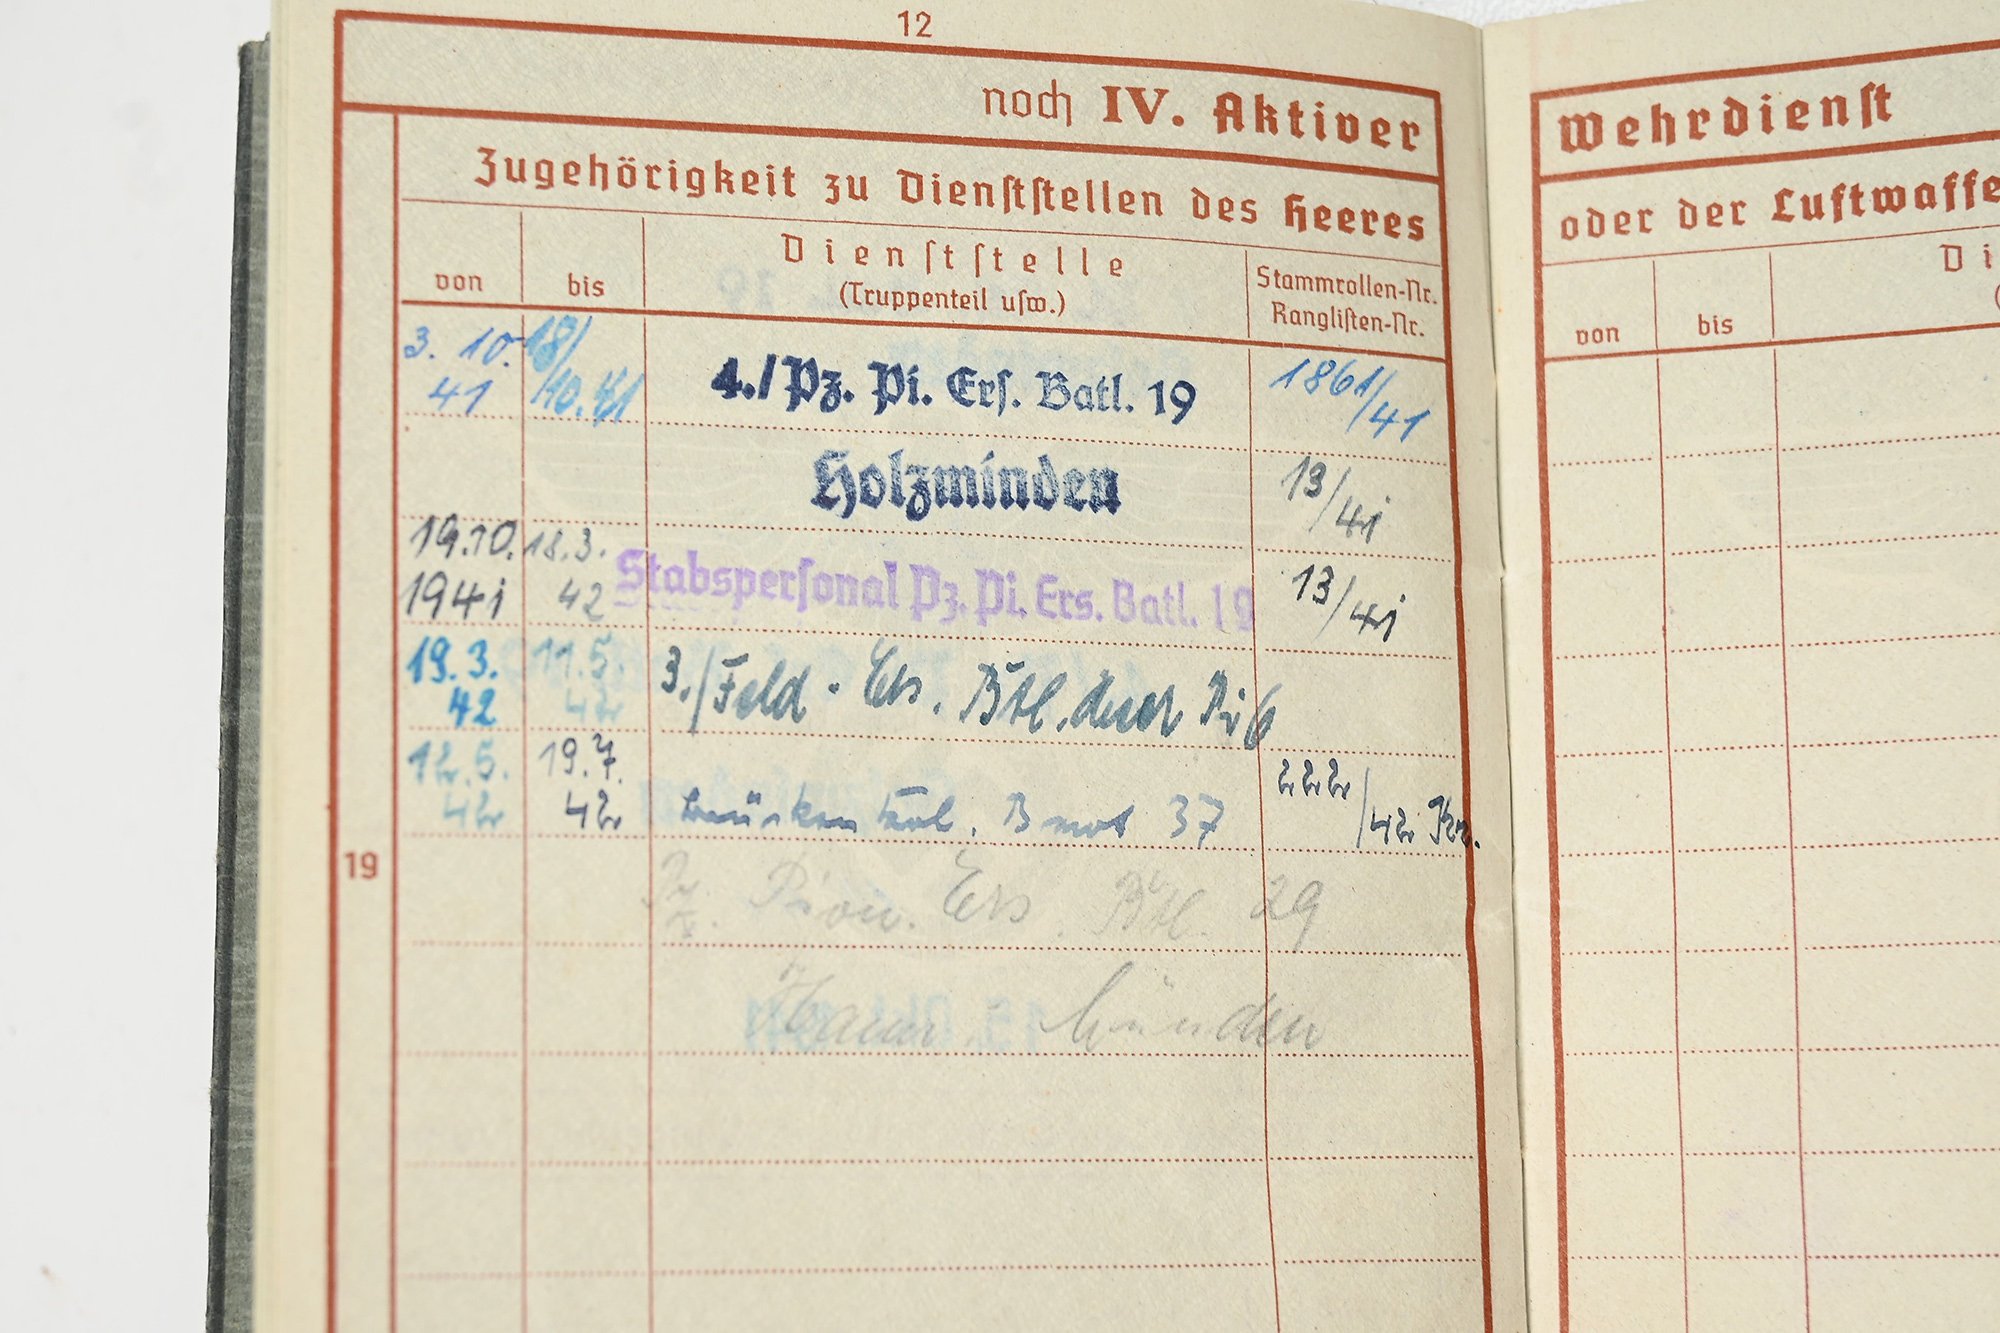 12
noch IV. Aktiver
Wehrdienst
Zugehörigkeit zu Dienststellen des Heeres
oder der Luftwaffe
von bis Dienststelle (Truppenteil usw.) Stammrollen-Nr. Ranglisten-Nr.
von bis Di
3. 10. 41 18/10.41 4./Pz. Pi. Ers. Batl. 19 1861/41
Holzminden 13/41
19.10. 1941 18.3. 42 Stabspersonal Pz. Pi. Ers. Batl. 19 13/41
19. 3. 42 11.5. 42 3./Feld-Ers. Btl. Pi 6
12. 5. 42 19.7. 42 B mot 37 222/42
19
Pz. Pion. Ers. Btl. 29
Hann. Münden